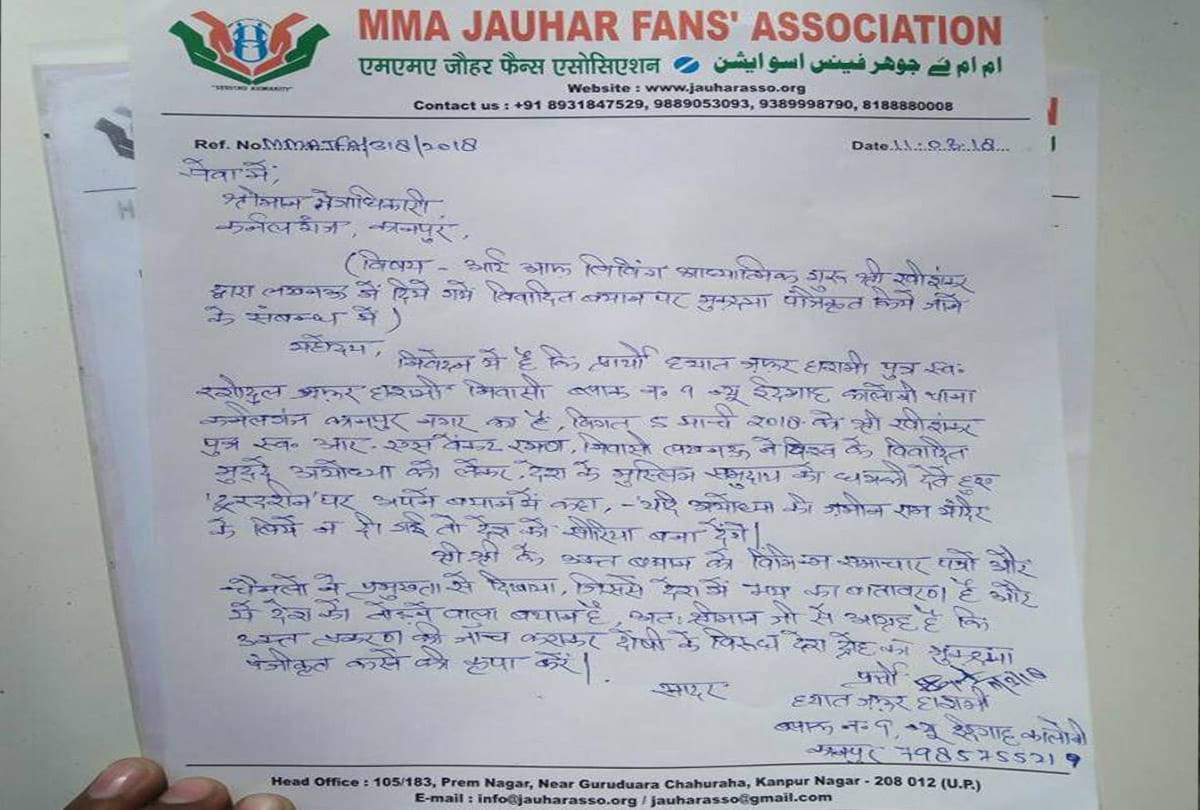 MMA JAUHAR FANS' ASSOCIATION
एमएमए जौहर फैन्स एसोसिएशन ام ام اے جوهر فینس اسوایشن
"SERVING HUMANITY"
Website : www.jauharasso.org
Contact us : +91 8931847529, 9889053093, 9389998790, 8188880008
Ref. No MMAJFA/318/2018 Date 11.03.18
सेवा में,
श्रीमान क्षेत्राधिकारी
कर्नलगंज, कानपुर,
(विषय - आर्ट आफ लिविंग आध्यात्मिक गुरु श्री रविशंकर
द्वारा लखनऊ में दिये गये विवादित बयान पर मुकदमा पंजिकृत किये जाने
के संबन्ध में)
महोदय,
निवेदन में है कि प्रार्थी हयात ज़फर हाशमी पुत्र स्व॰
ज़फर हाशमी निवासी ब्लाक न॰ १ न्यू ईदगाह कालोनी थाना
कर्नलगंज कानपुर नगर का है, विगत 5 मार्च 2018 को श्री रविशंकर
पुत्र स्व॰ आर॰ एस॰ वेंकट रमण, निवासी लखनऊ ने विश्व के विवादित
मुद्दे अयोध्या को लेकर देश के मुस्लिम समुदाय को धमकी देते हुए
'दूरदर्शन' पर अपने बयान में कहा, - 'यदि अयोध्या की ज़मीन राम मंदिर
के लिये न दी गई तो देश को सीरिया बना देंगे।
श्री श्री के उक्त बयान को विभिन्न समाचार पत्रों और
चैनलों ने प्रमुखता से दिखाया, जिससे देश में भय का वातावरण है और
ये देश को तोड़ने वाला बयान है, अतः श्रीमान जी से आग्रह है कि
उक्त प्रकरण की जांच कराकर दोषी के विरुद्ध देश द्रोह का मुकदमा
पंजीकृत करने की कृपा करें।
सादर
प्रार्थी
हयात ज़फर हाशमी
ब्लाक न॰ १, न्यू ईदगाह कालोनी
कानपुर 7985755219
Head Office : 105/183, Prem Nagar, Near Guruduara Chahuraha, Kanpur Nagar - 208 012 (U.P.)
E-mail : info@jauharasso.org / jauharasso@gmail.com